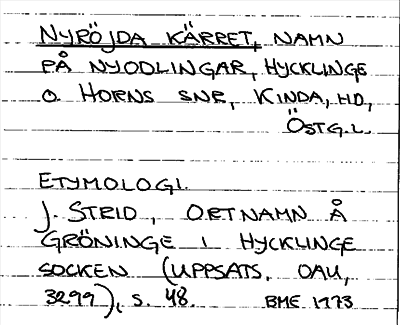 NYRÖJDA KÄRRET, NAMN
PÅ NYODLINGAR, HYCKLINGE
O. HORNS SNR, KINDA, HD,
ÖSTG.L.
ETYMOLOGI.
J. STRID, ORTNAMN Å
GRÖNINGE I HYCKLINGE
SOCKEN (UPPSATS, OAU,
3299), S. 48. BME 1973